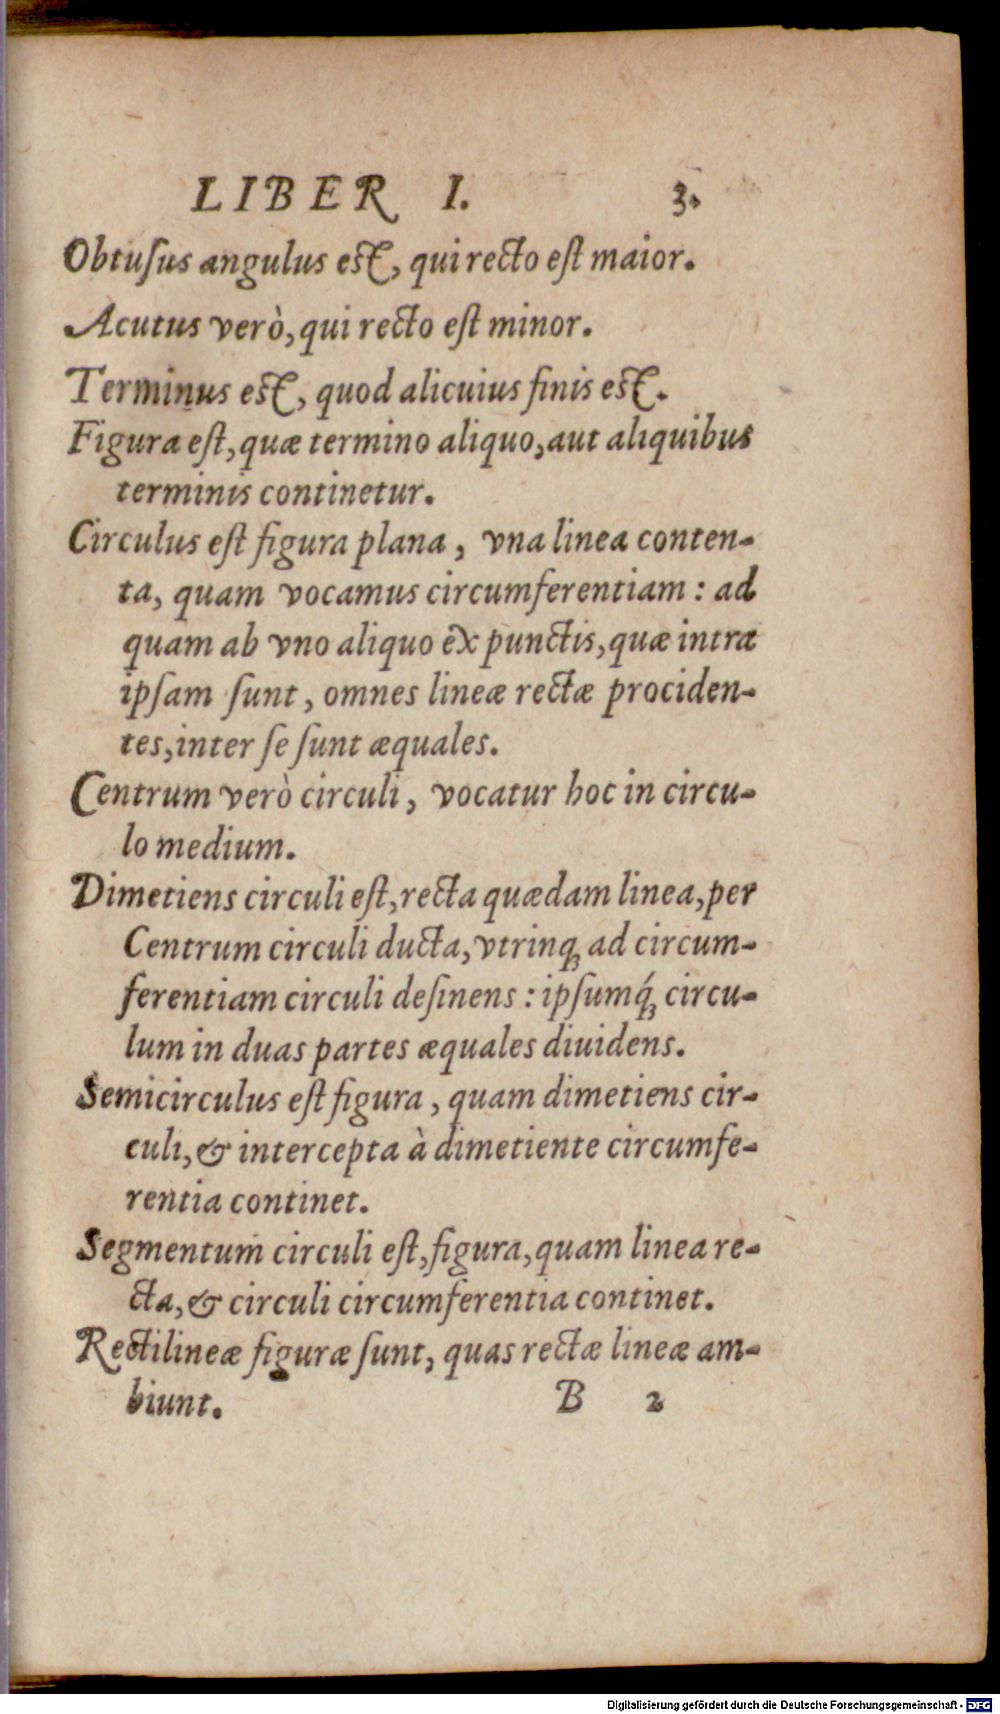 LIBER I. 3.
Obtuſus angulus est, qui recto eſt maior.
Acutus verò, qui recto eſt minor.
Terminus est, quod alicuius finis est.
Figura eſt, quæ termino aliquo, aut aliquibus
terminis continetur.
Circulus eſt figura plana, vna linea conten-
ta, quam vocamus circumferentiam: ad
quam ab vno aliquo ex punctis, quæ intra
ipſam ſunt, omnes lineæ rectæ prociden-
tes, inter ſe ſunt æquales.
Centrum verò circuli, vocatur hoc in circu-
lo medium.
Dimetiens circuli eſt, recta quædam linea, per
Centrum circuli ducta, vtrinq; ad circum-
ferentiam circuli deſinens: ipſumq́; circu-
lum in duas partes æquales diuidens.
Semicirculus eſt figura, quam dimetiens cir-
culi, & intercepta à dimetiente circumfe-
rentia continet.
Segmentum circuli eſt, figura, quam linea re-
cta, & circuli circumferentia continet.
Rectilineæ figuræ ſunt, quas rectæ lineæ am-
biunt. B 2
Digitalisierung gefördert durch die Deutsche Forschungsgemeinschaft - DFG